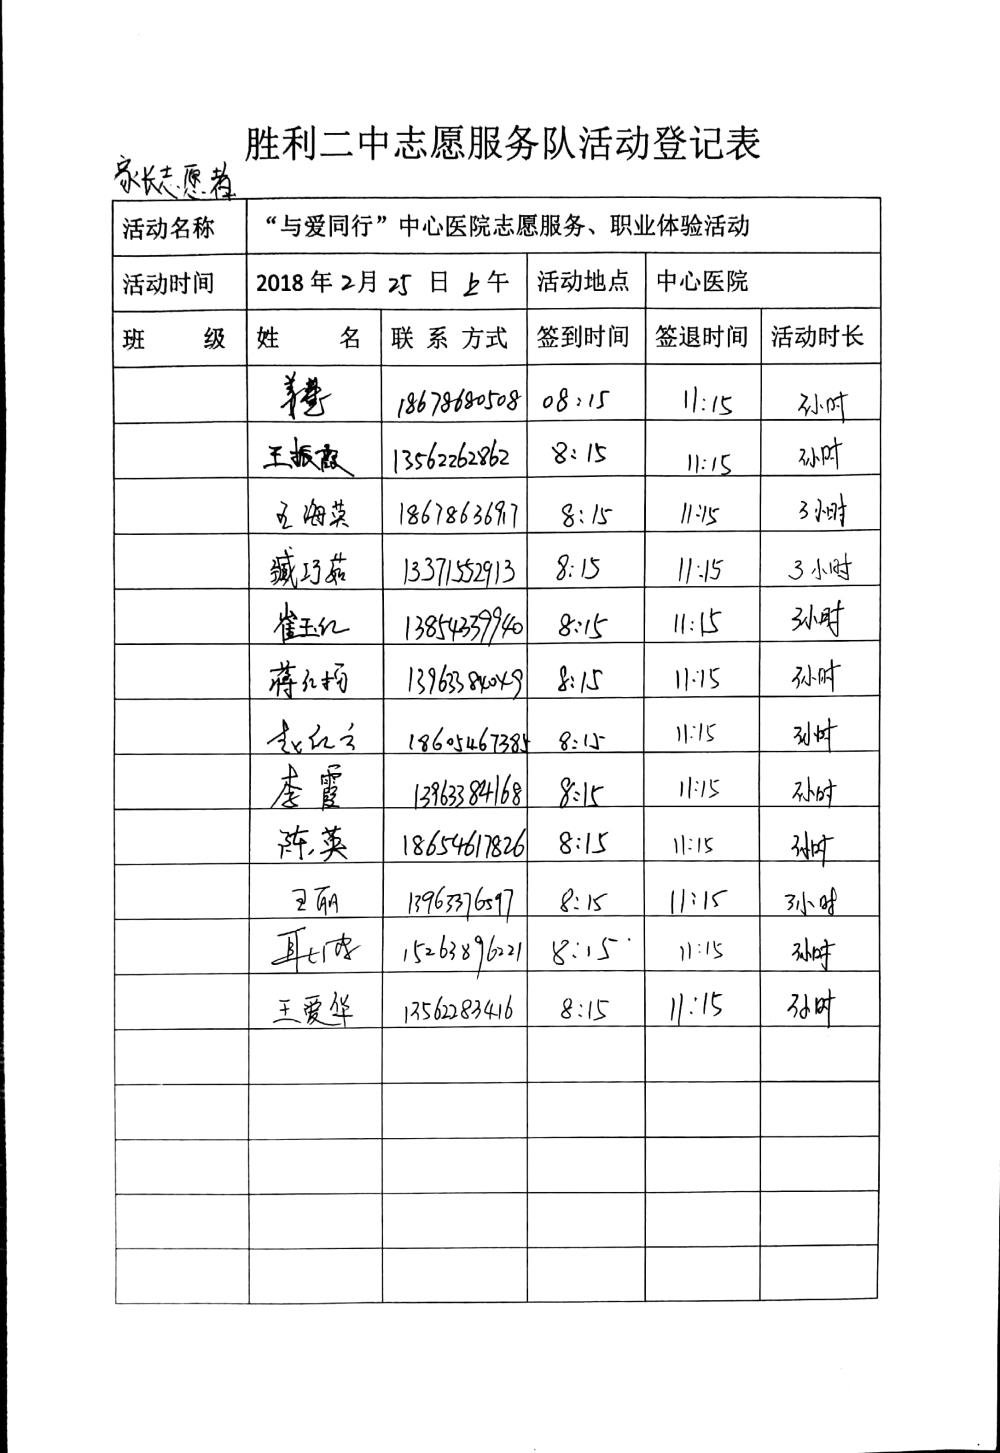 胜利二中志愿服务队活动登记表
家长志愿者
活动名称 “与爱同行”中心医院志愿服务、职业体验活动
活动时间 2018年2月25日上午 活动地点 中心医院
班 级 姓 名 联系方式 签到时间 签退时间 活动时长
18678680508 08:15 11:15 3小时
王振霞 13562262862 8:15 11:15 3小时
王海英 1867863697 8:15 11:15 3小时
臧巧茹 13371552913 8:15 11:15 3小时
崔玉红 13854339940 8:15 11:15 3小时
蒋红梅 13963384049 8:15 11:15 3小时
赵红云 18605467385 8:15 11:15 3小时
李霞 13963384168 8:15 11:15 3小时
陈英 18654617826 8:15 11:15 3小时
王丽 13963376597 8:15 11:15 3小时
15263896221 8:15 11:15 3小时
王爱华 13562283416 8:15 11:15 3小时